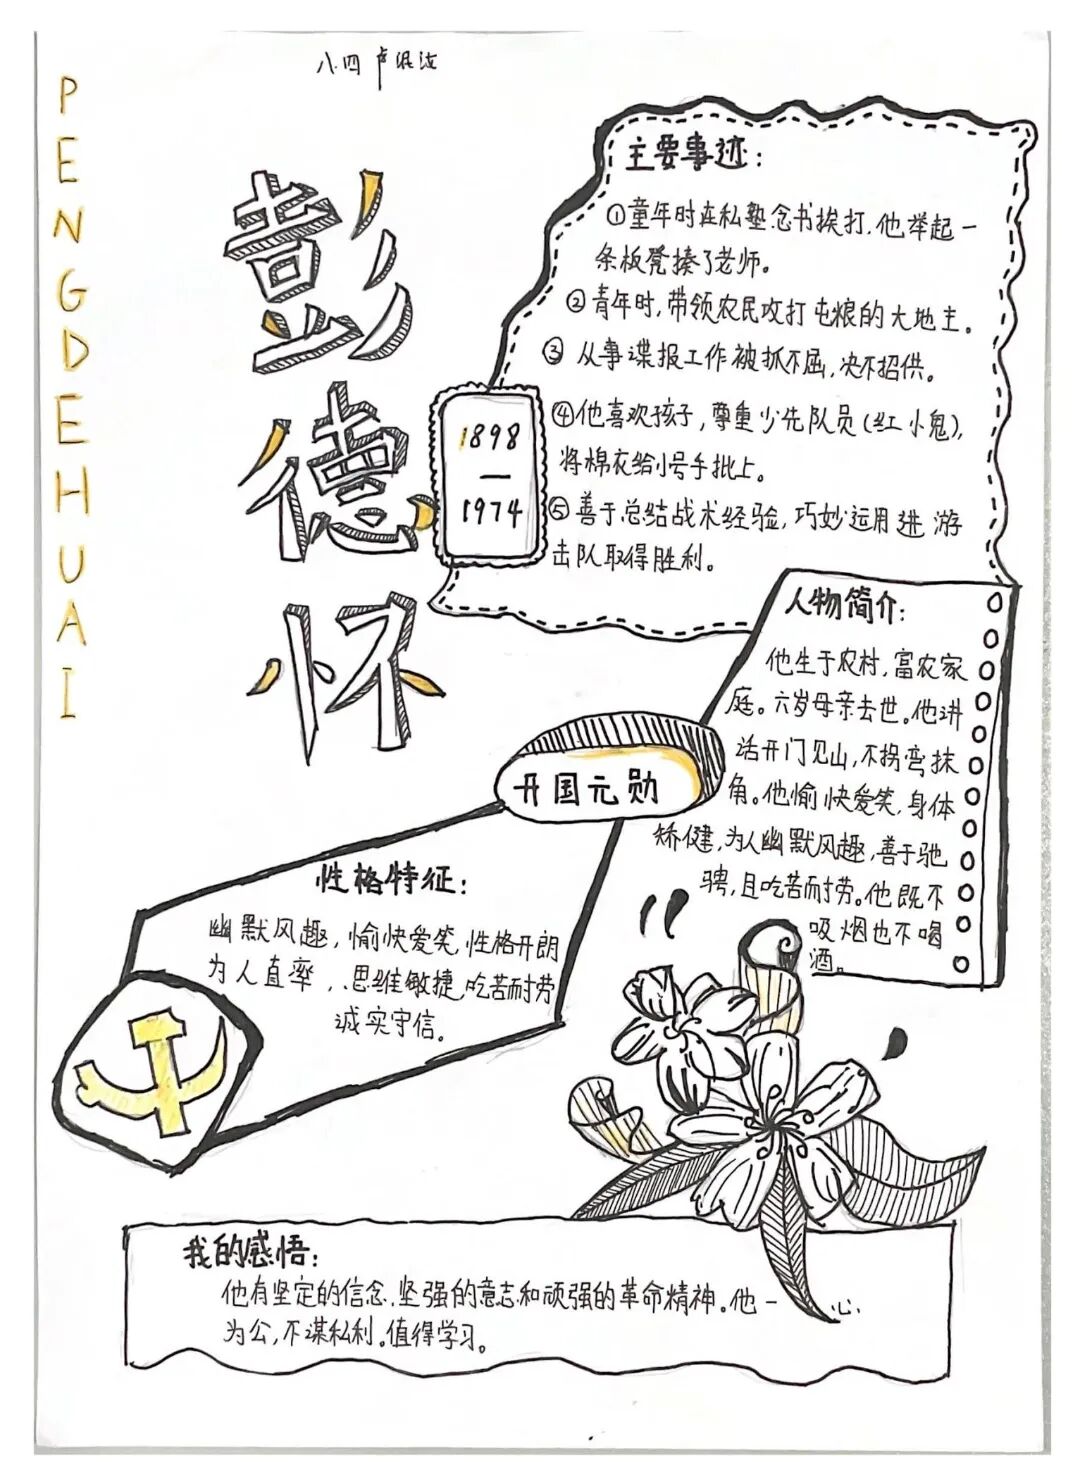 八.四
PENGDEHUAI
彭德怀
1898
—
1974
主要事迹：
①童年时在私塾念书挨打,他举起一
条板凳揍了老师。
②青年时,带领农民攻打屯粮的大地主。
③ 从事谍报工作被抓不屈,决不招供。
④他喜欢孩子,尊重少先队员(红小鬼),
将棉衣给小号手批上。
⑤善于总结战术经验,巧妙运用进游
击队取得胜利。
人物简介：
他生于农村,富农家
庭。六岁母亲去世。他讲
话开门见山,不拐弯抹
角。他愉快爱笑,身体
矫健,为人幽默风趣,善于驰
骋,且吃苦耐劳。他既不
吸烟也不喝
酒。
开国元勋
性格特征：
幽默风趣,愉快爱笑,性格开朗
为人直率,思维敏捷,吃苦耐劳
诚实守信。
我的感悟：
他有坚定的信念,坚强的意志和顽强的革命精神。他一心
为公,不谋私利。值得学习。